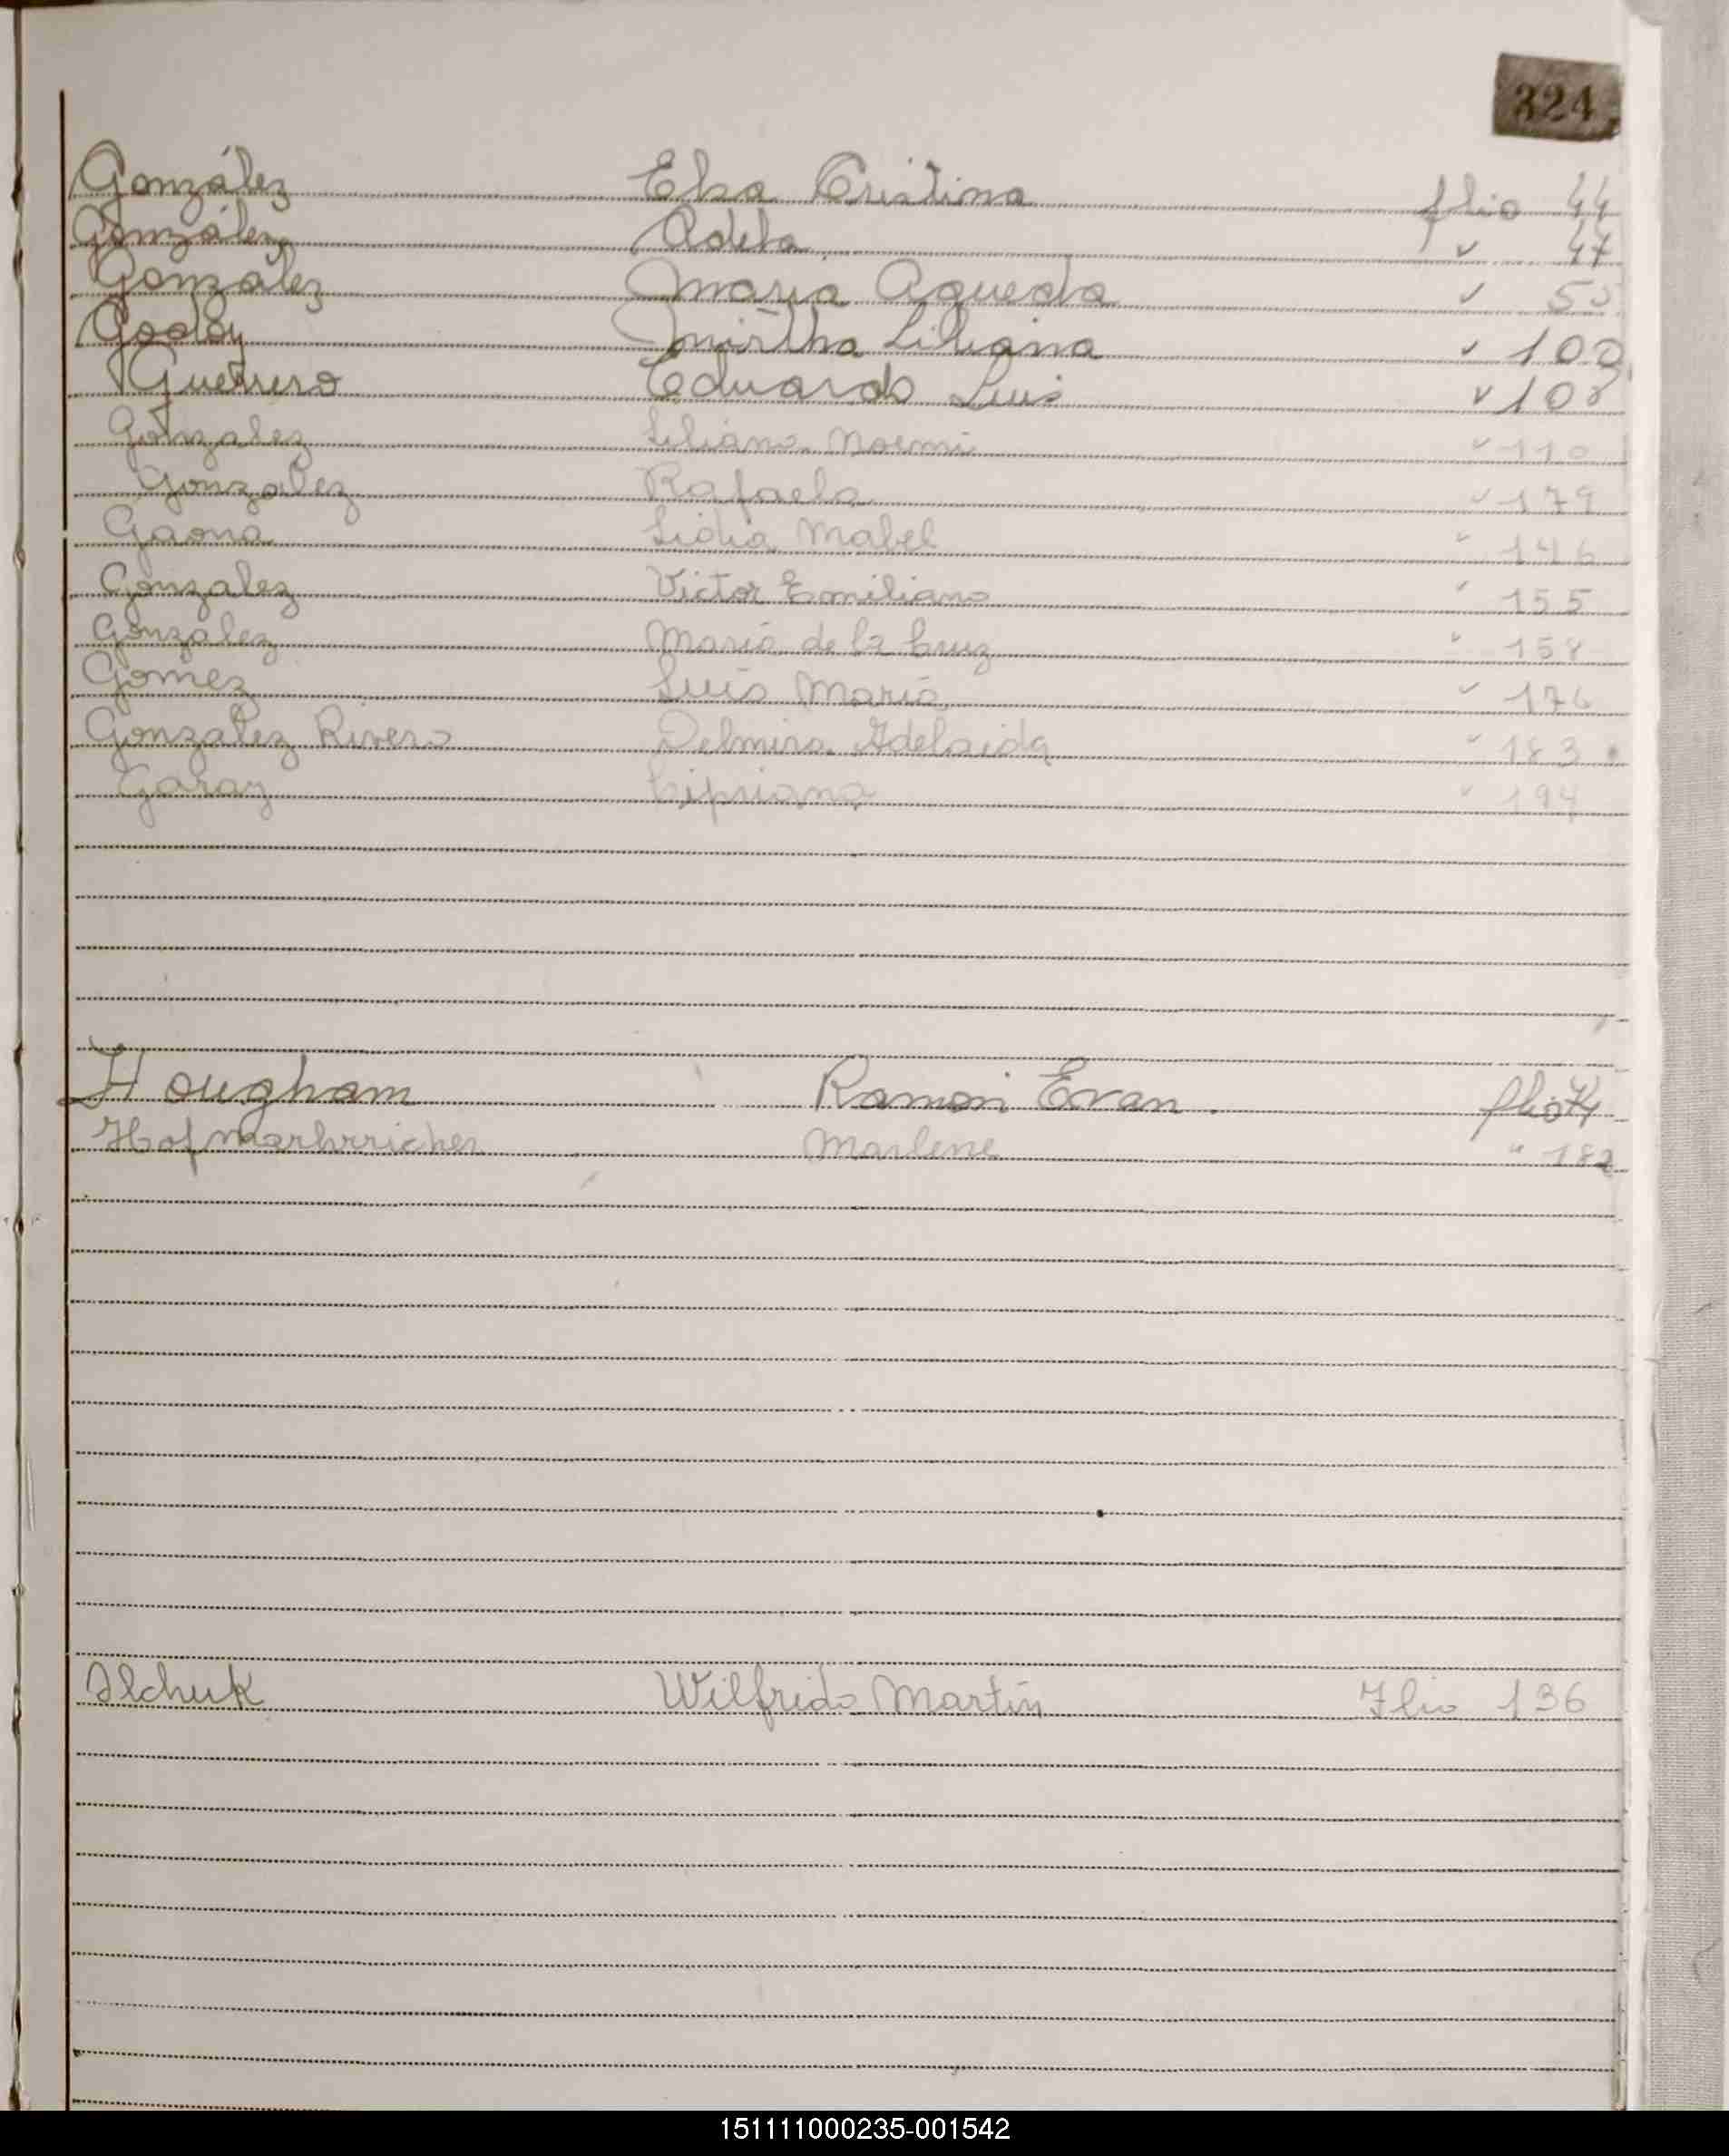 324
González Elsa Cristina flio 44
González Adela " 47
González María Agueda " 55
Godoy Mirtha Liliana " 102
Guerrero Eduardo Luis " 108
Gonzalez Liliana Noemi " 110
Gonzalez Rafaela " 179
Gaona Lidia Mabel " 146
Gonzalez Victor Emiliano " 155
Gonzalez Maria de la Cruz " 158
Gomez Luis Maria " 176
Gonzalez Rivero Delmira Adelaida " 183
Garay Cipriana " 194
Hougham Ramón Evan. flio
Marlene " 182
Ilchuk Wilfrido Martín Flio 136
151111000235-001542